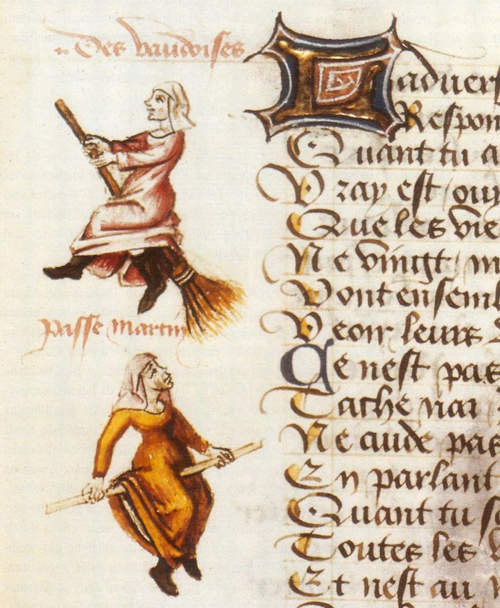 Des vaudoises
passe martin
Ladvers
Respon
Quant tu a
Vray est ou
Que les vie
Ne vingt m
Vont ensem
Veoir leurs
Ce nest pas
Tache
Ne cuide pas
En parlant
Quant tu s
Toutes les v
Et nest au